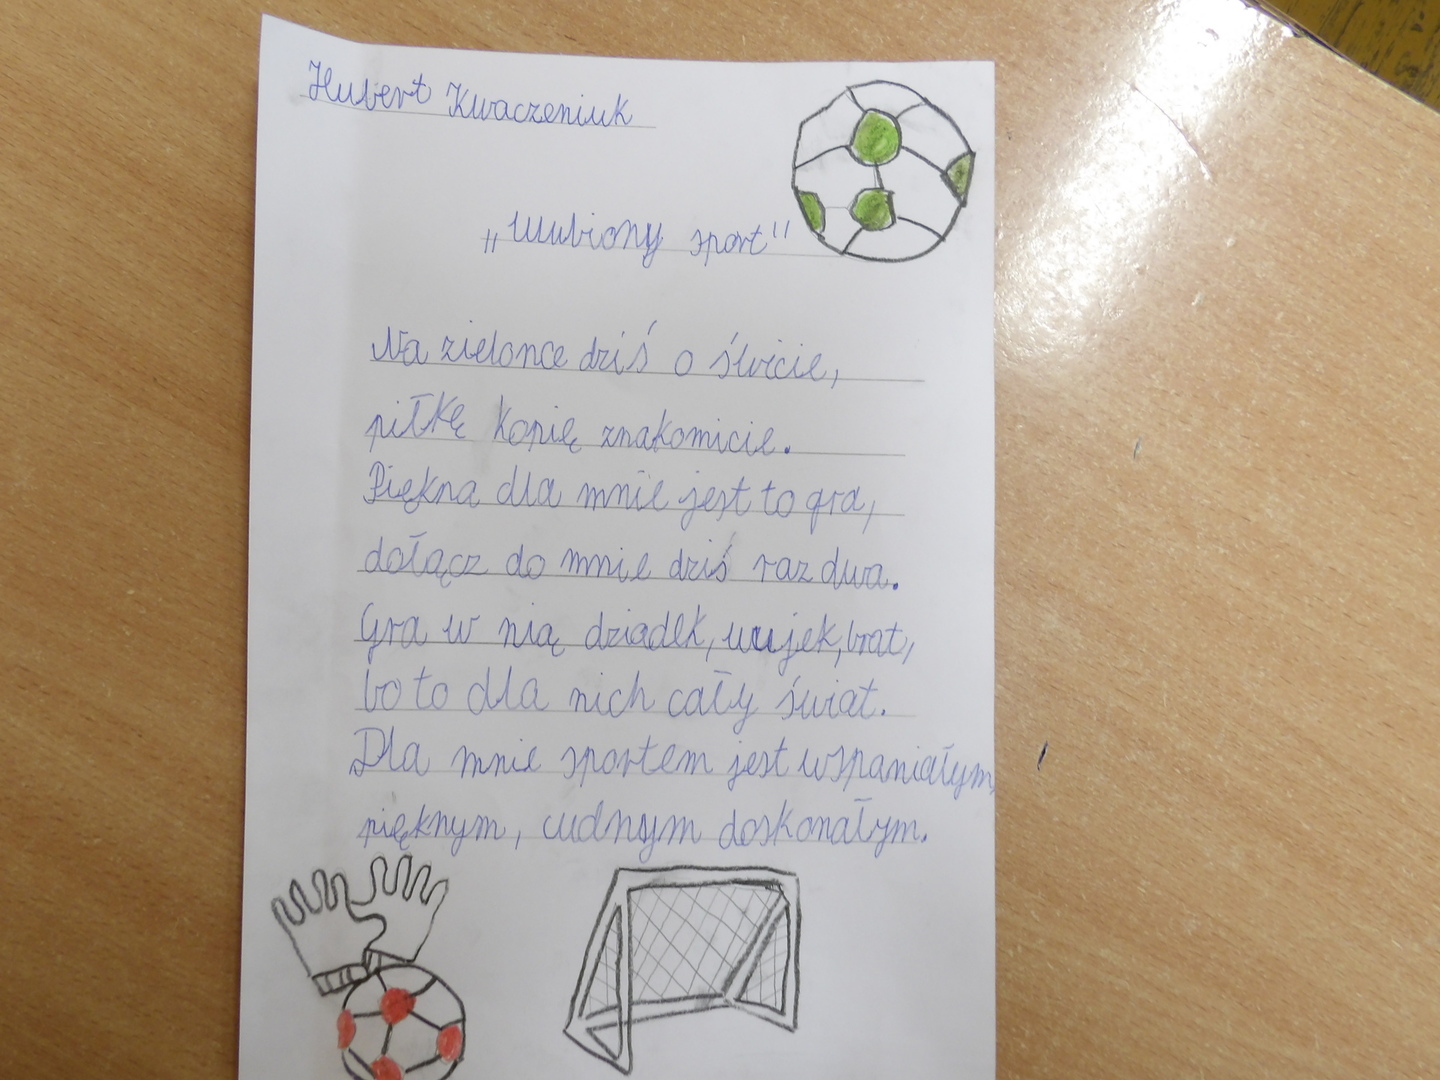 Hubert Kwaczeniuk
„Ulubiony sport"
Na zielonce dziś o świcie,
piłkę kopię znakomicie.
Piękna dla mnie jest to gra,
dołącz do mnie dziś raz dwa.
Gra w nią dziadek, wujek, brat,
bo to dla nich cały świat.
Dla mnie sportem jest wspaniałym,
pięknym, cudnym doskonałym.